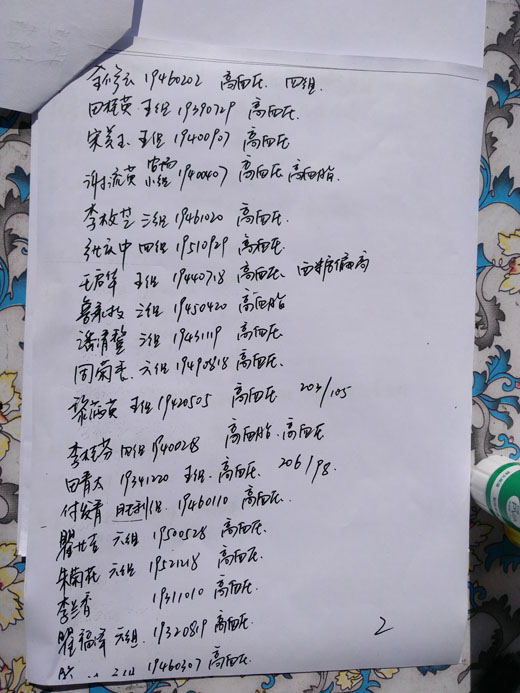 19460202 高血压. 四组.
田桂英 五组 19390729 高血压.
宋美玉 五组 19400907 高血压.
谢流英 小组 19400407 高血压 高血脂.
李枚芝 三组 19461020 高血压.
中 四组 19510929 高血压.
王君华 五组 19440718 高血压. 血糖偏高
鲁 六组 19450420 高血脂
潘 六组 19431119 高血压
周菊香. 六组 19490818 高血压.
黎 英 五组 19420505 高血压 202/105
李桂芬 四组 19400228 高血脂. 高血压
田青 19341220 五组. 高血压. 206/98.
付 青 胜利组. 19460110 高血压.
瞿 六组 19500528 高血压
朱菊花 六组 19521218 高血压
李兰香 19311010 高血压
瞿福 六组. 19320819 高血压. 2
19460307 高血压.